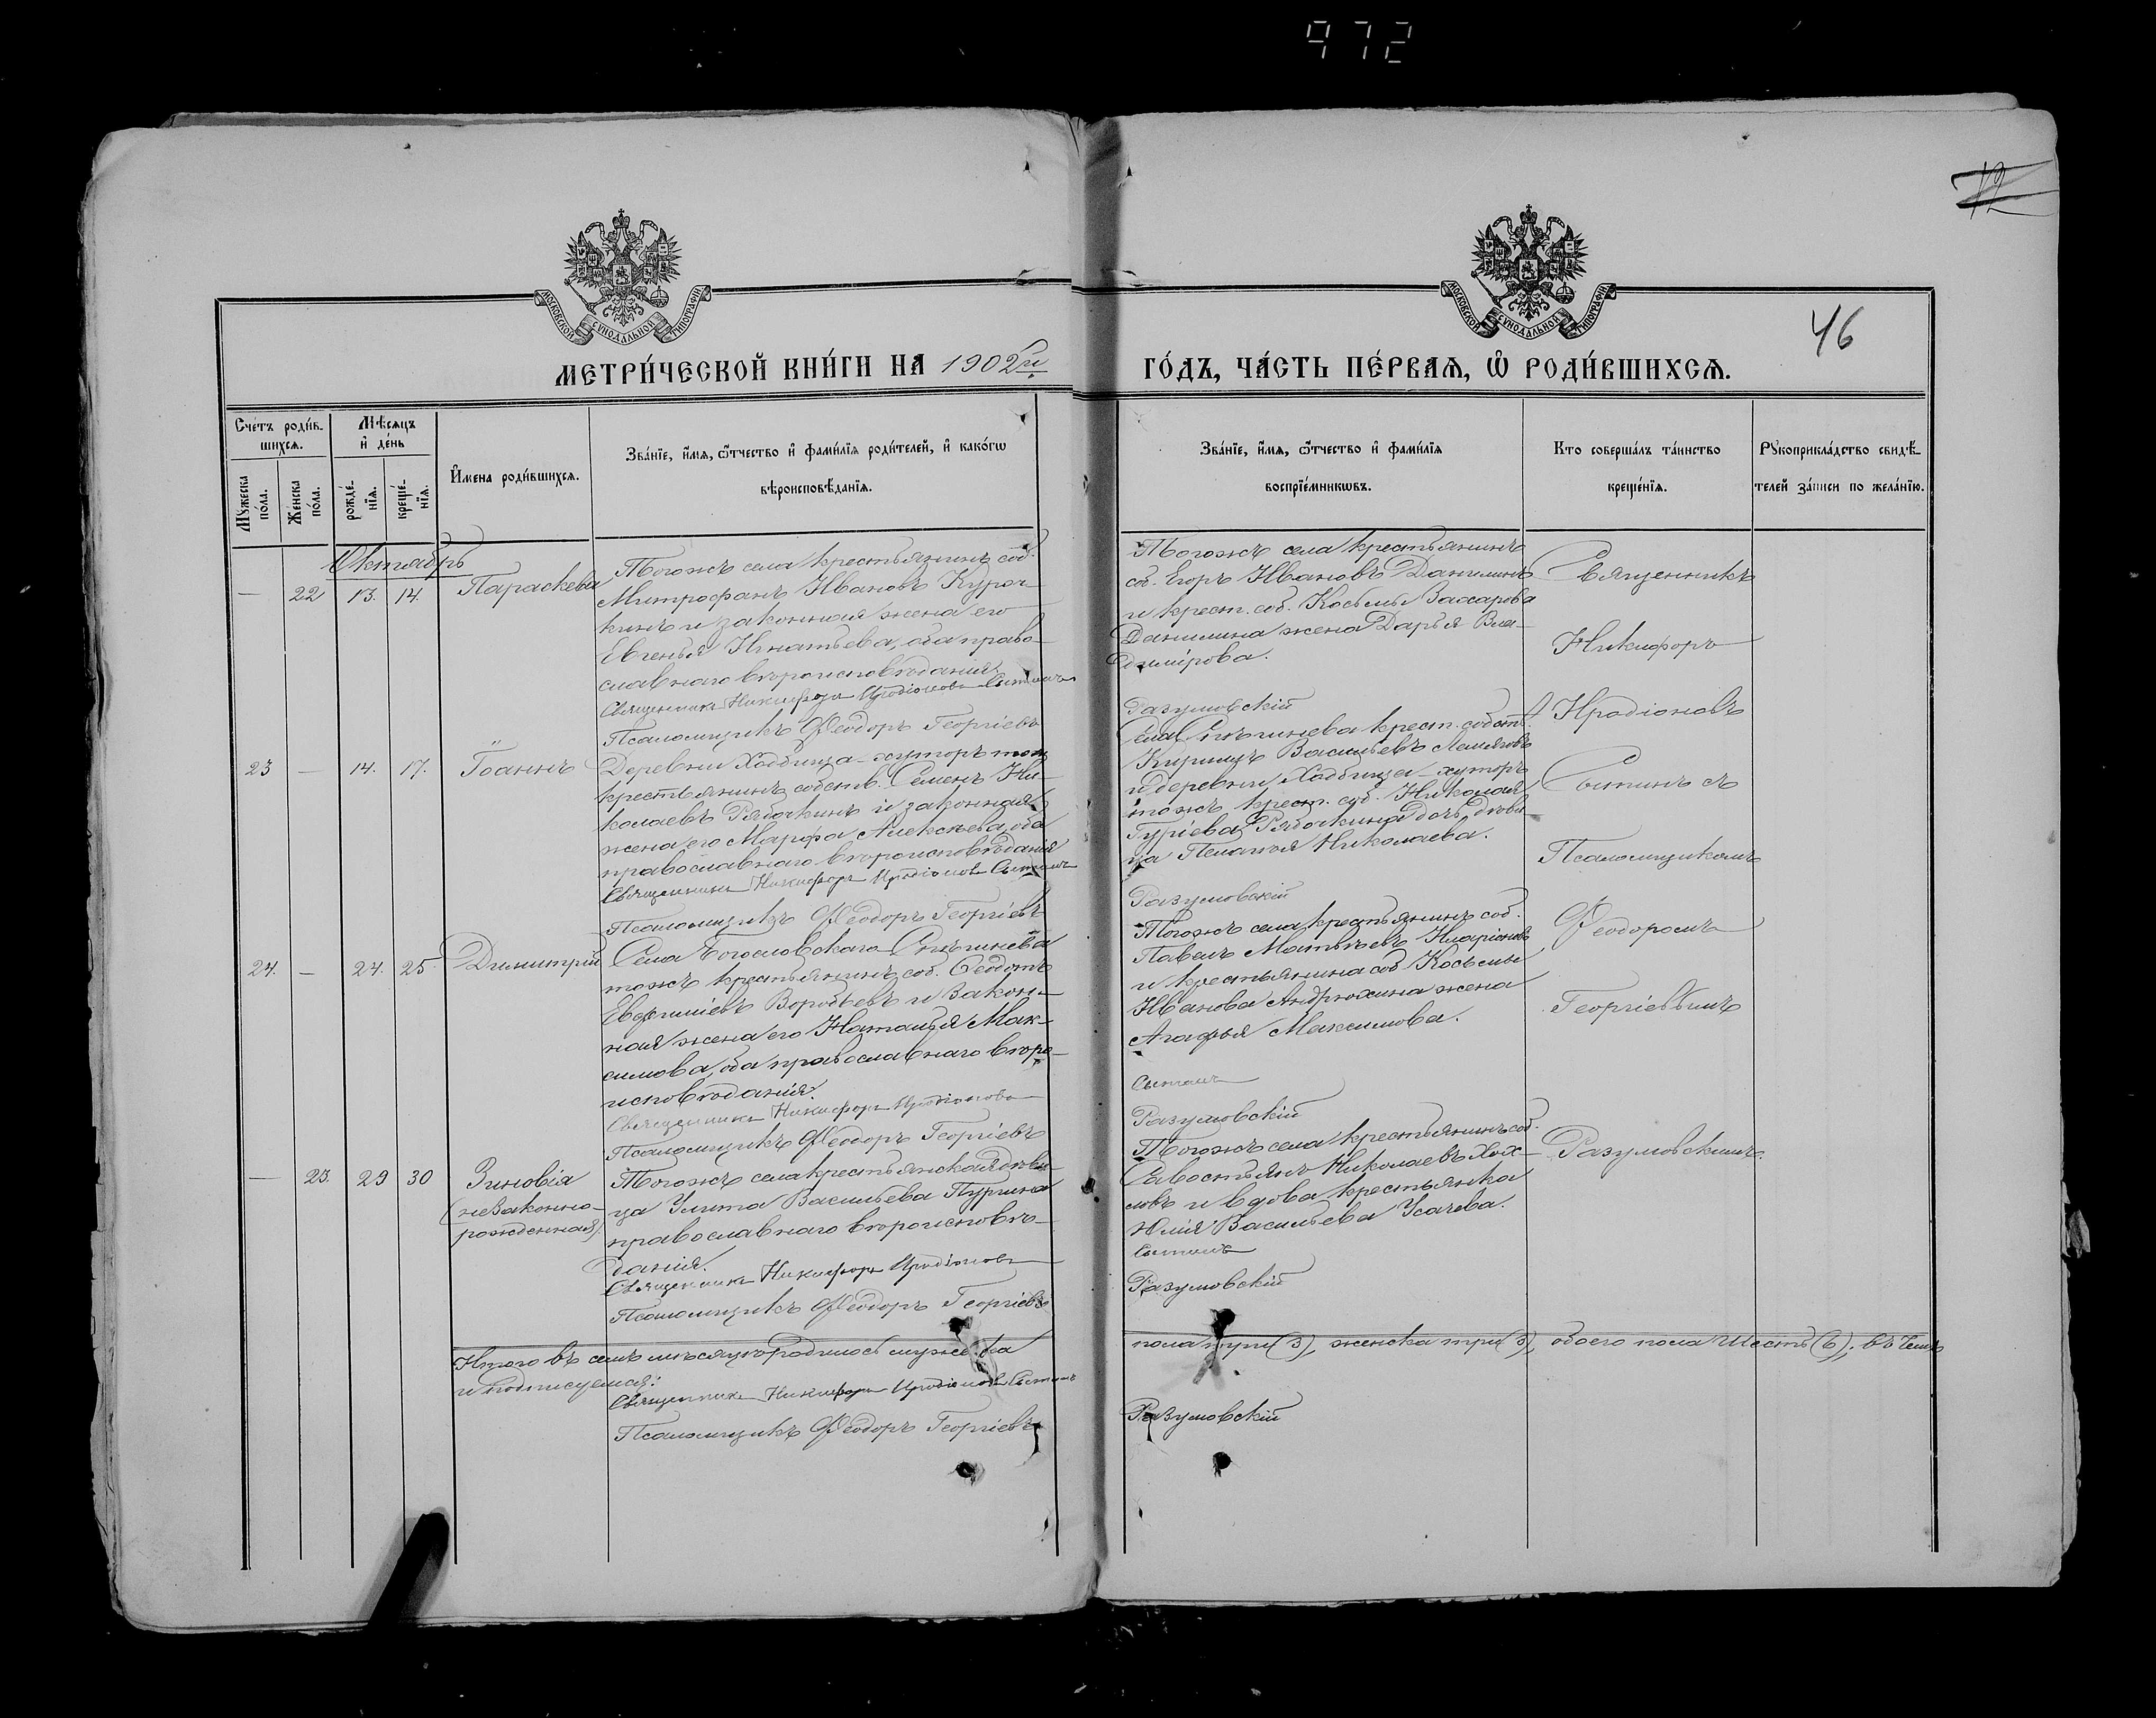 972
12
46
МОСКОВСКОЙ СѴНОДАЛЬНОЙ ТИПОГРАФІИ
МОСКОВСКОЙ СѴНОДАЛЬНОЙ ТИПОГРАФІИ
МЕТРИ́ЧЕСКОЙ КНИ́ГИ НА 1902й ГО́ДЪ, ЧА́СТЬ ПЕ́РВАѦ, Ѽ РОДИ́ВШИХСѦ.
Сче́тъ роди́в-
шихсѧ.
Мꙋ́жеска по́ла.
Же́нска по́ла.
Мѣ́сѧцъ
и҆ де́нь
рожде́-
нїѧ.
креще́-
нїѧ.
И҆мена роди́вшихсѧ.
Зва́нїе, и҆́мѧ, ѻ҆́тчество и҆ фами́лїѧ роди́телей, и҆ како́гѡ
вѣроисповѣ́данїѧ.
Зва́нїе, и҆́мѧ, ѻ҆́тчество и҆ фами́лїѧ
воспрїе́мникѡвъ.
Кто соверша́лъ та́инство
креще́нїѧ.
Рꙋкоприкла́дство свидѣ́-
телей за́писи по жела́нїю.
Октябрь
— 22 13. 14. Параскева
Тогожъ села крестьянинъ соб.
Митрофанъ Ивановъ Куроч-
кинъ и законная жена его
Евгенья Игнатьева, оба право-
славнаго вѣроисповѣданія.
Священникъ Никифоръ Иродіоновъ Сытинъ
Псаломщикъ Ѳеодоръ Георгіевъ
Тогожъ села крестьянинъ
соб. Егоръ Ивановъ Данилинъ
и крест. соб. Косьмы Захарова
Данилина жена Дарья Вла-
димірова.
Разумовскій
Священникъ
Никифоръ
Иродіоновъ
Сытинъ съ
Псаломщикомъ
Ѳеодоромъ
Георгіевымъ
Разумовскимъ.
23 — 14. 17. Іоаннъ
Деревни хуторъ тожъ
крестьянинъ собств. Семенъ Ни-
колаевъ Рябочкинъ и законная
жена его Марфа Алексѣева, оба
православнаго вѣроисповѣданія
Священникъ Никифоръ Иродіоновъ Сытинъ
Псаломщикъ Ѳеодоръ Георгіевъ
Села крест. собств.
Кириллъ Васильевъ
и деревни хуторъ
тожъ крест. соб. Николая
Гуріева Рябочкина дочь дѣви-
ца Пелагея Николаева.
Разумовскій
24. — 24. 25. Димитрій
Села Богословскаго
тожъ крестьянинъ соб. Ѳедотъ
Евфиміевъ Воробьевъ и закон-
ная жена его Наталья Мак-
симова, оба православнаго вѣро-
исповѣданія.
Священникъ Никифоръ Иродіоновъ
Псаломщикъ Ѳеодоръ Георгіевъ
Тогожъ села крестьянинъ соб.
Павелъ Матвѣевъ Иларіоновъ
и крестьянина соб. Косьмы
Иванова Андрюхина жена
Агафья Максимова.
Сытинъ
Разумовскій
— 23. 29 30 Зиновія
(незаконно-
рожденная).
Тогожъ села крестьянская дѣви-
ца Улита Васильева
православнаго вѣроисповѣ-
данія.
Священникъ Никифоръ Иродіоновъ
Псаломщикъ Ѳеодоръ Георгіевъ
Тогожъ села крестьянинъ соб.
Савостьянъ Николаевъ Хох-
ловъ и вдова крестьянка
Юлія Васильева Усачева.
Сытинъ
Разумовскій
Итого въ семъ мѣсяцѣ родилось мужеска пола три (3), женска три (3), обоего пола шесть (6), въ чемъ
и подписуемся:
Священникъ Никифоръ Иродіоновъ Сытинъ
Псаломщикъ Ѳеодоръ Георгіевъ Разумовскій